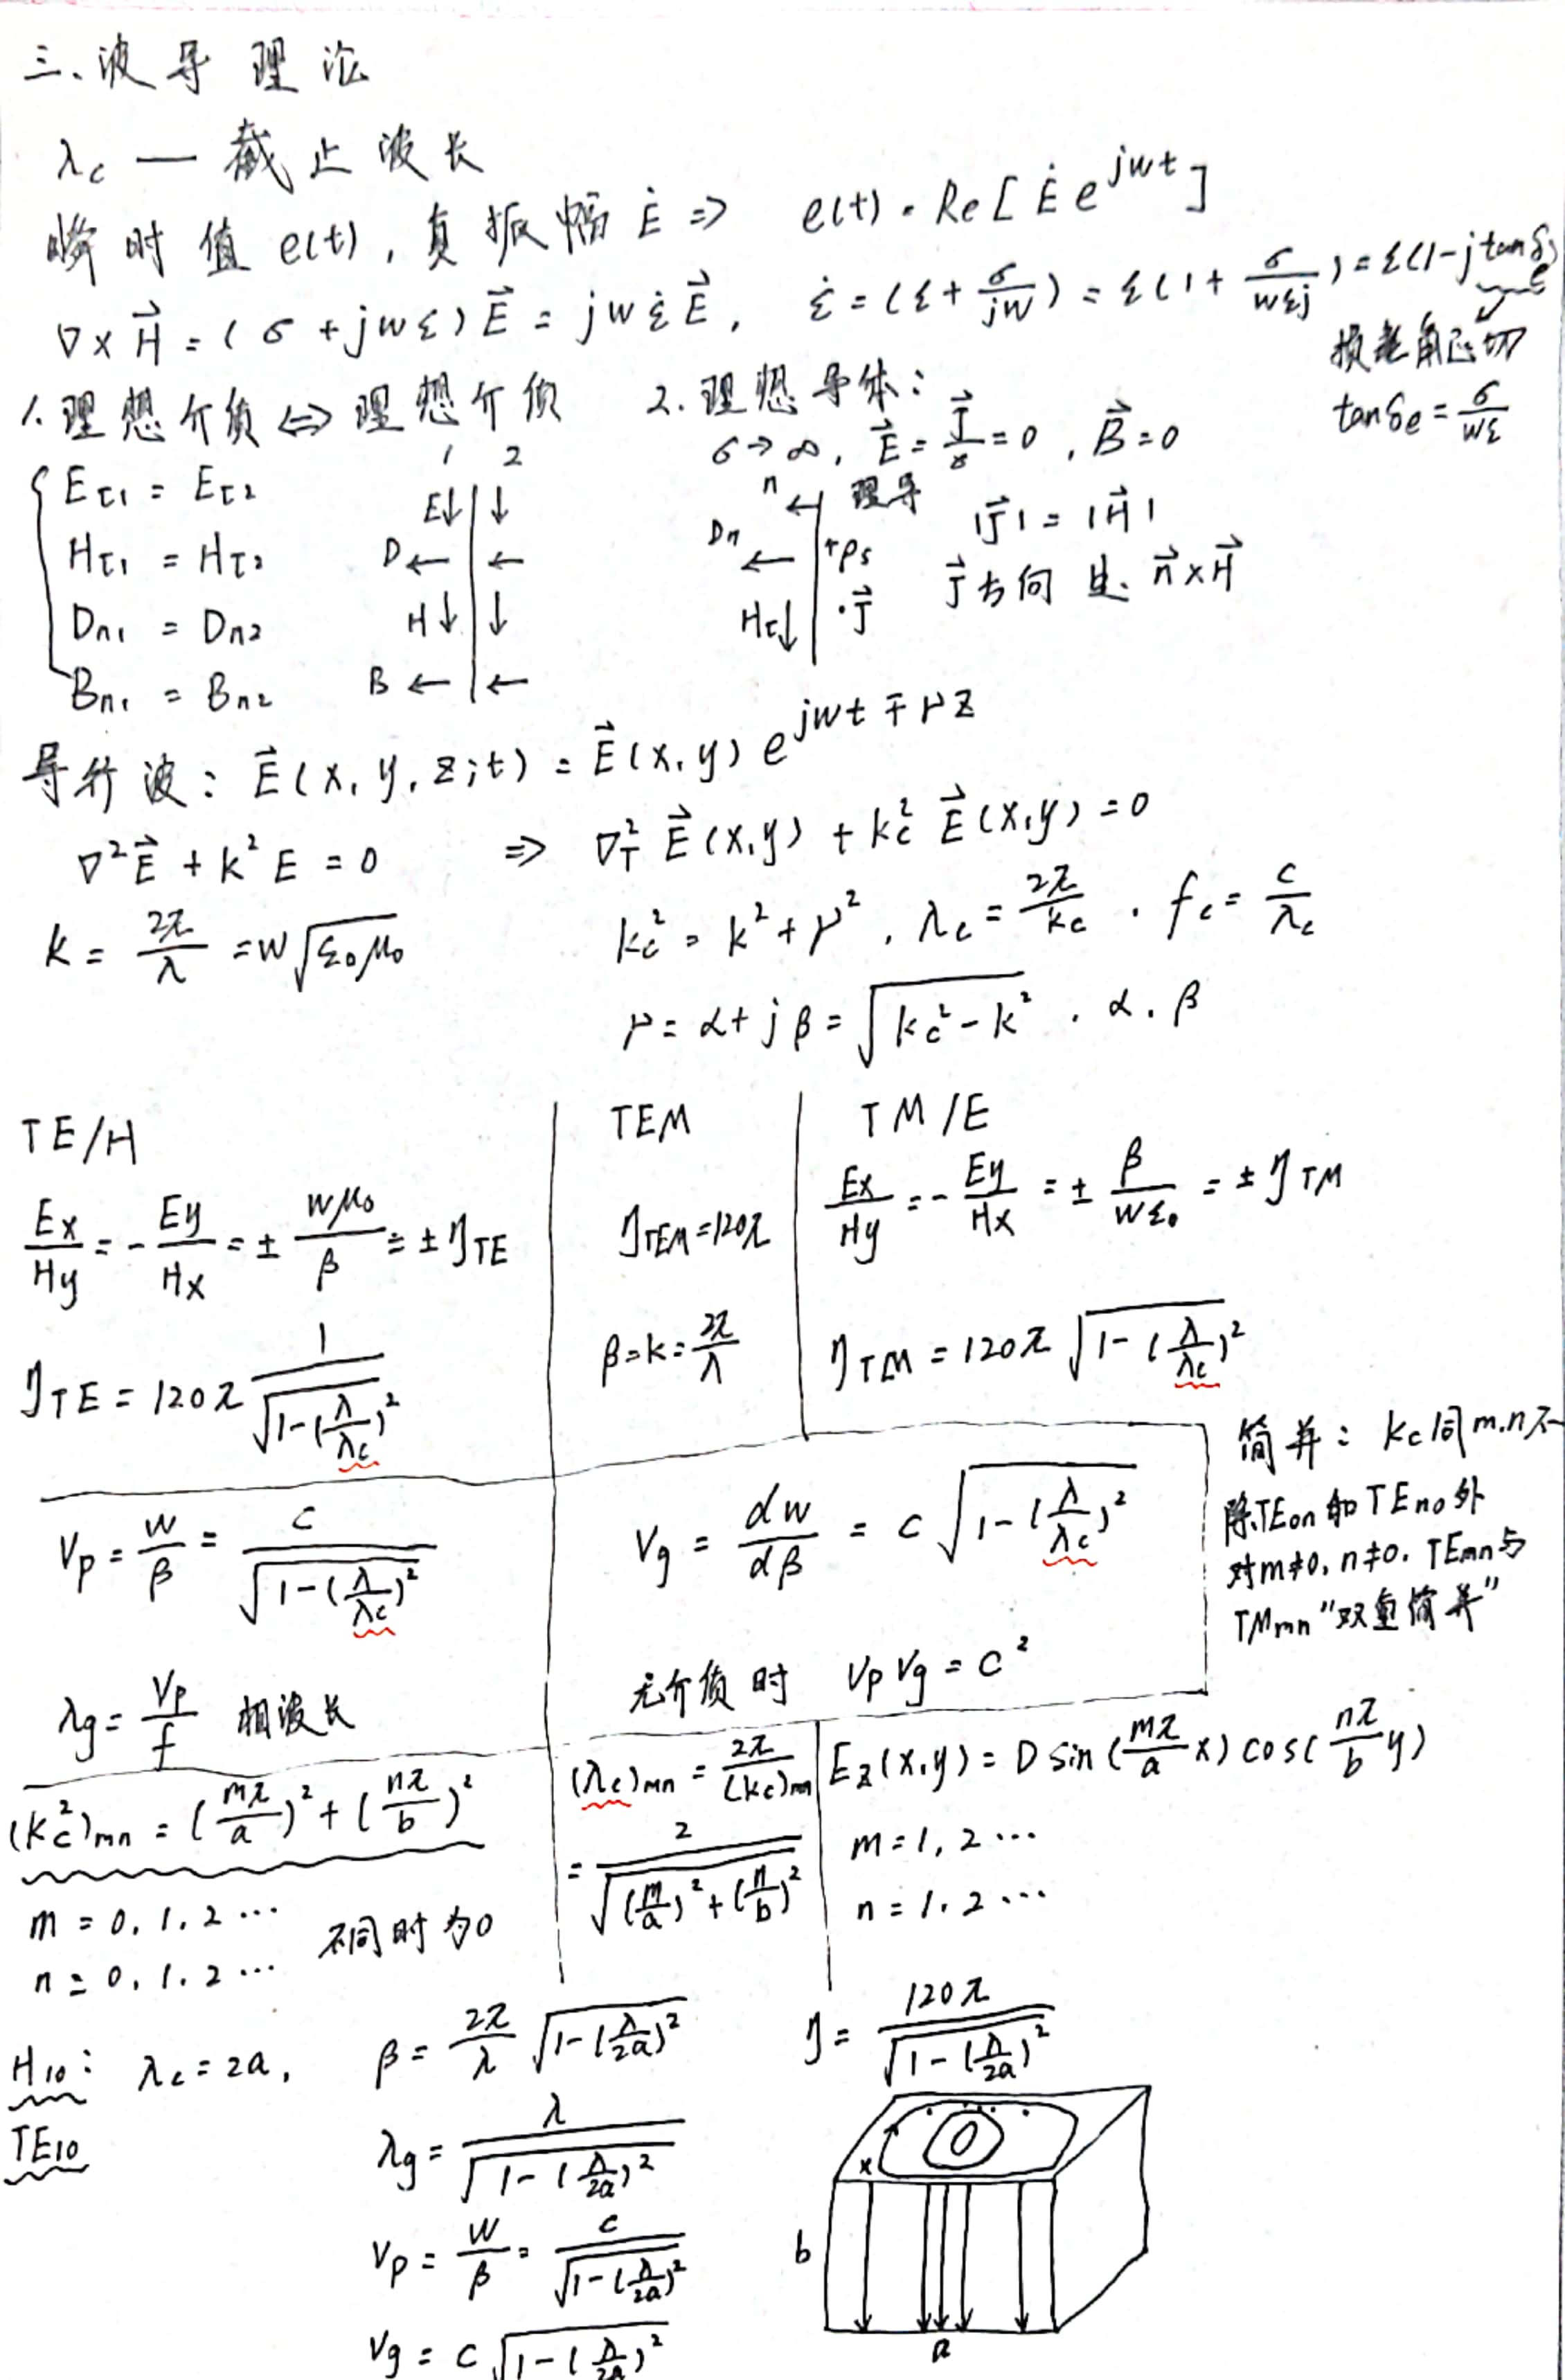 三、波导理论
λc — 截止波长
瞬时值 e(t), 复振幅 Ė ⇒ e(t) = Re[Ė e^{jwt}]
∇×H⃗ = (σ + jwε)E⃗ = jwε̇E⃗, ε̇ = (ε + σ/jw) = ε(1 + σ/wεj) = ε(1 - j tanδe)
损耗角正切
tanδe = σ/wε
1. 理想介质 ⇔ 理想介质
Eτ1 = Eτ2
Hτ1 = Hτ2
Dn1 = Dn2
Bn1 = Bn2
1 2
E↓ ↓
D← ←
H↓ ↓
B← ←
2. 理想导体:
σ→∞, E⃗ = J⃗/σ = 0, B⃗ = 0
n ← 理导
Dn ← +ρs
Hτ↓ ·J⃗
|J⃗| = |H⃗|
J⃗方向是 n⃗×H⃗
导行波: E⃗(x, y, z; t) = E⃗(x, y) e^{jwt∓γz}
∇²E⃗ + k²E = 0 ⇒ ∇T² E⃗(x,y) + kc² E⃗(x,y) = 0
k = 2π/λ = w√(ε0μ0) kc² = k² + γ², λc = 2π/kc, fc = c/λc
γ = α + jβ = √(kc² - k²), α, β
TE/H
Ex/Hy = -Ey/Hx = ± wμ0/β = ±ηTE
ηTE = 120π 1/√(1-(λ/λc)²)
TEM
ηTEM = 120π
β = k = 2π/λ
TM/E
Ex/Hy = -Ey/Hx = ± β/wε0 = ±ηTM
ηTM = 120π √(1-(λ/λc)²)
Vp = w/β = c/√(1-(λ/λc)²)
λg = Vp/f 相波长
Vg = dw/dβ = c√(1-(λ/λc)²)
无介质时 VpVg = c²
简并: kc同m.n不
除TEon和TEno外
对m≠0, n≠0. TEmn与
TMmn"双重简并"
(kc²)mn = (mπ/a)² + (nπ/b)²
m = 0, 1, 2 ···
n = 0, 1, 2 ···
不同时为0
(λc)mn = 2π/(kc)mn
= 2/√((m/a)² + (n/b)²)
Ez(x,y) = D sin(mπ/a x) cos(nπ/b y)
m = 1, 2 ···
n = 1, 2 ···
H10: λc = 2a, β = 2π/λ √(1-(λ/2a)²) η = 120π/√(1-(λ/2a)²)
TE10
λg = λ/√(1-(λ/2a)²)
Vp = w/β = c/√(1-(λ/2a)²)
Vg = c√(1-(λ/2a)²)
x
b
a